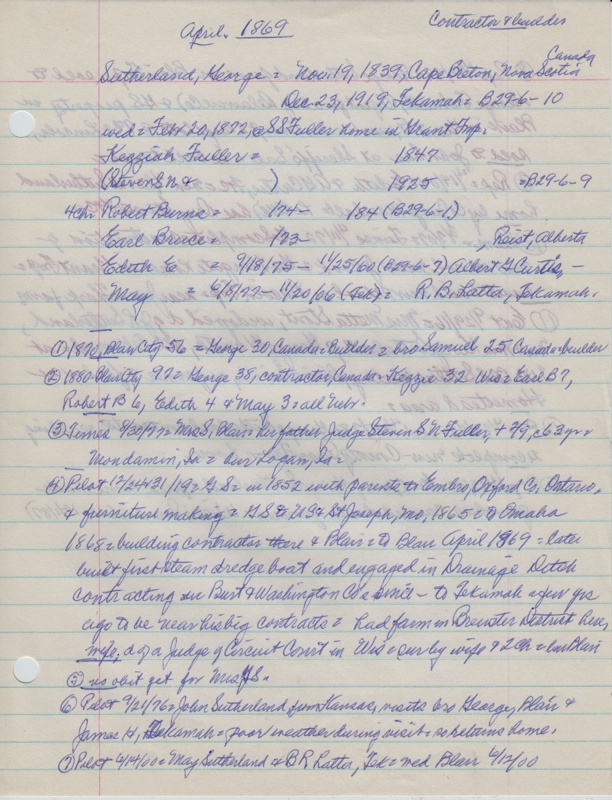 April. 1869
Contractor & builder
Sutherland, George = Nov. 19, 1839, Cape Breton, Nova Scotia
Canada
Dec. 23, 1919, Tekamah = B29-6-10
wed = Feb 20, 1872, @ SS Fuller home in Grant Twp.
Kezziah Fuller = 1847
(Steven S N & ) 1925 = B29-6-9
4 ch: Robert Burns = 1874- 184 (B29-6-1)
Earl Bruce = 1873- , Reist, Alberta
Edith E = 9/8/75 - 1/25/60 (B29-6-7) Albert G Curtis, -
May = 6/8/77 - 11/20/06 (Tek) = R.B. Latta, Tekamah.
① 1870, Blair City 56 = George 30, Canada = Builder = bro Samuel 25 Canada = builder
② 1880 Blair City 97 = George 38, contractor, Canada = Kezzie 32 Wis = Earl B 7,
Robert B 6, Edith 4 & May 3 = all Nebr.
③ Times = Mrs S, Blair = her father Judge Steven S N Fuller, + 2/9, @ 63 yrs
Mondamin, Ia = bur Logan, Ia =
④ Pilot 12/24&31/19 = G S = in 1852 with parents to Embro, Oxford Co, Ontario =
& furniture making = G S & US = St Joseph, Mo, 1865 = to Omaha
1868 = building contractor there & Blair = to Blair April 1869 = later
built first steam dredge boat and engaged in Drainage Ditch
contracting in Burt & Washington Co's since - to Tekamah a few yrs
ago to be near his big contracts = had farm in Brewster District here,
wife, d of a Judge of Circuit Court in Wis = sur by wife & 2 ch = bur Blair
⑤ no obit yet for Mrs G S.
⑥ Pilot 9/21/76 = John Sutherland from Kansas, visits bro George, Blair &
James H, Tekamah = poor weather during visit = so returns home.
⑦ Pilot 4/14/00 = May Sutherland & B R Latta, Tek = wed Blair 4/12/00